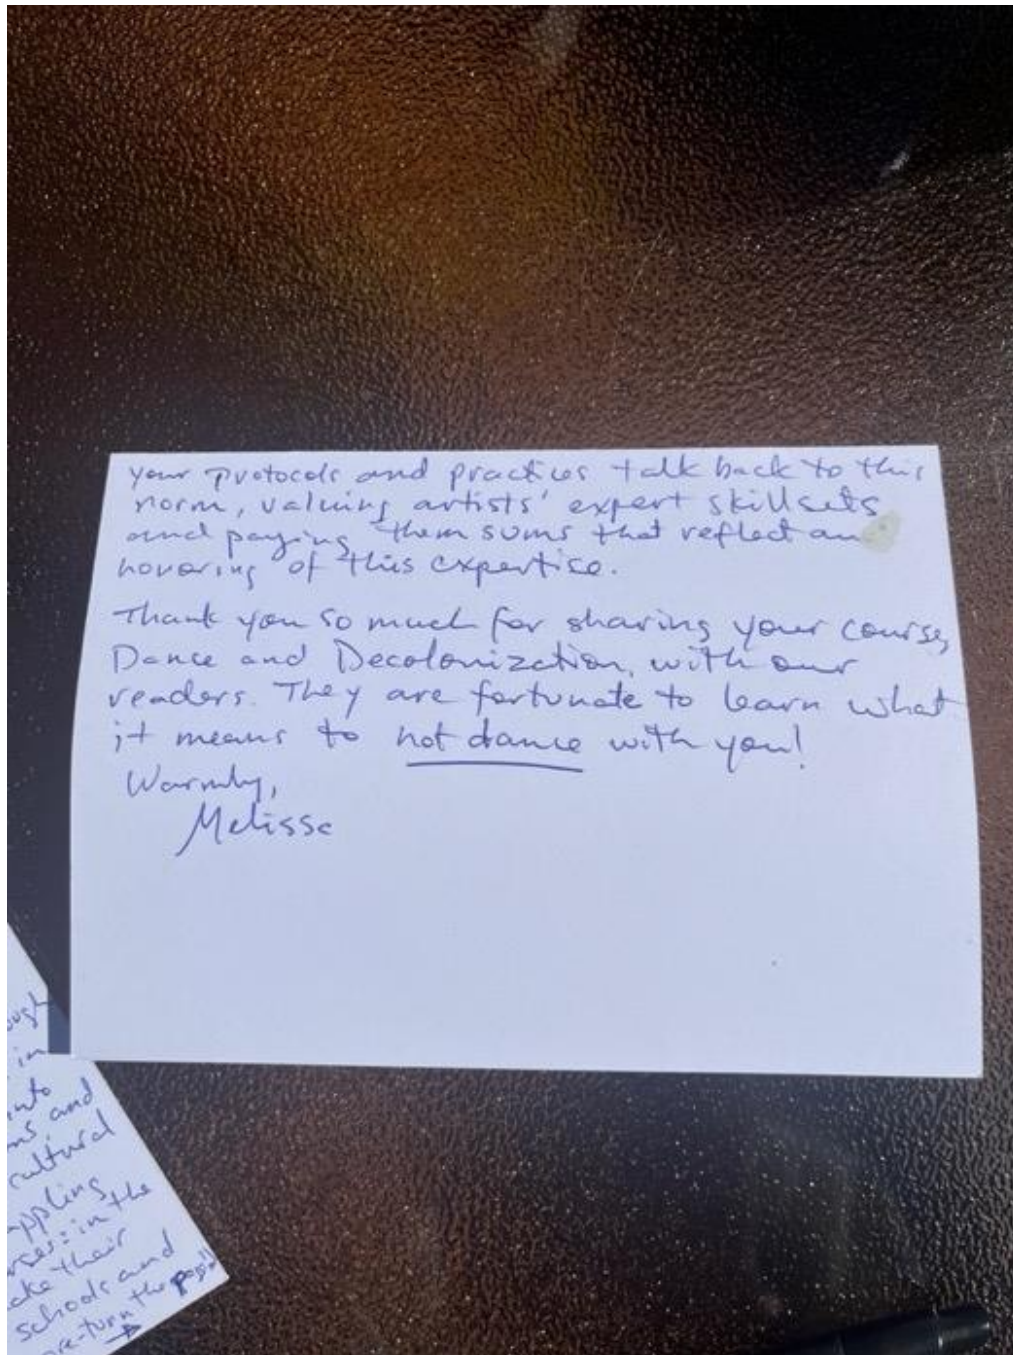 your protocols and practices talk back to this
norm, valuing artists' expert skillsets
and paying them sums that reflect an
honoring of this expertise.
Thank you so much for sharing your course,
Dance and Decolonization, with our
readers. They are fortunate to learn what
it means to not dance with you!
Warmly,
Melissa
in
into
and
cultural
in the
their
schools and
turn the page!!